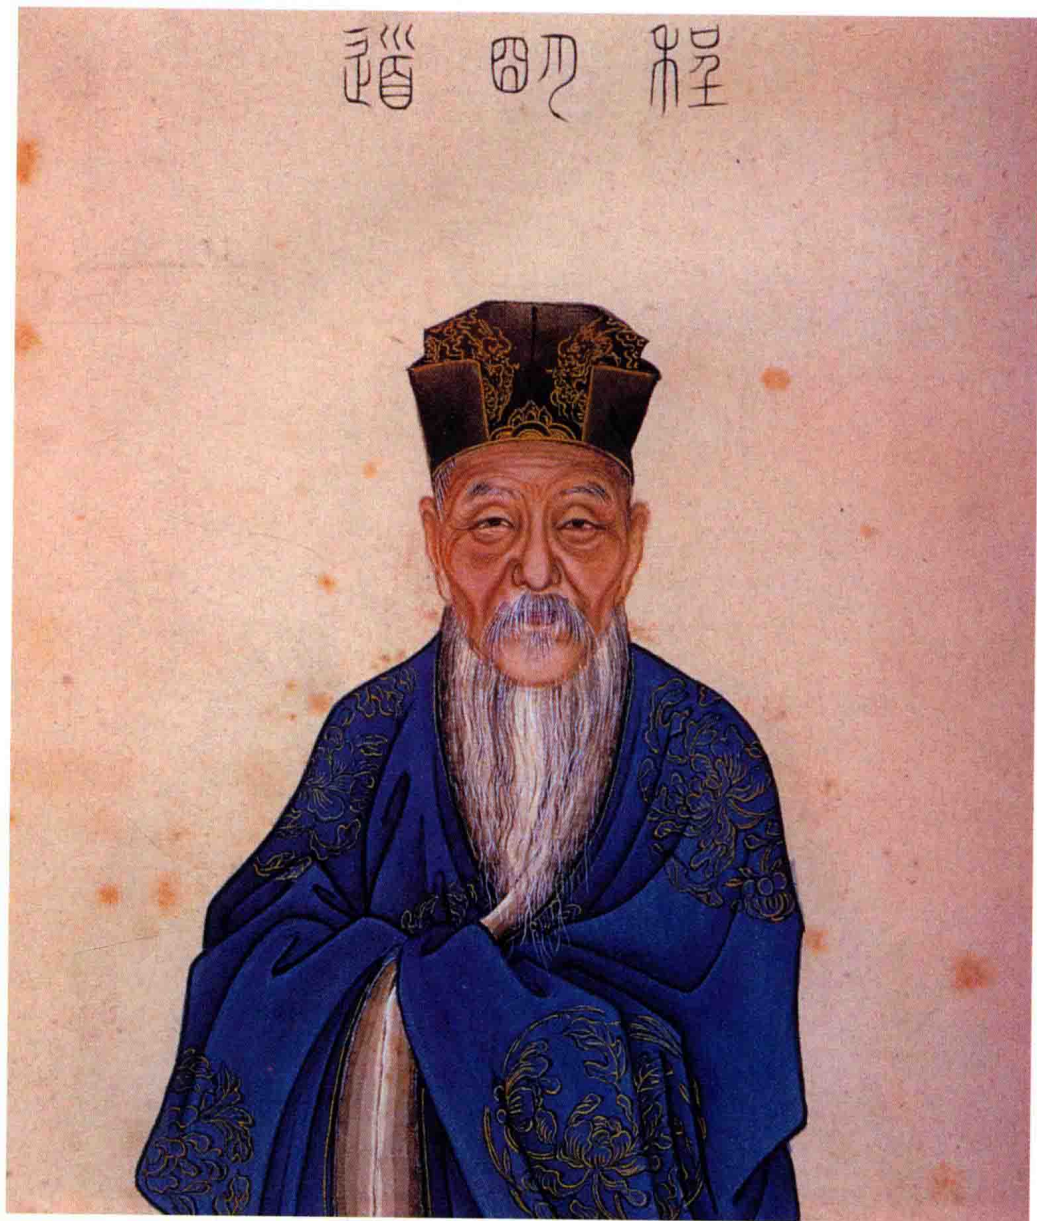 程明道